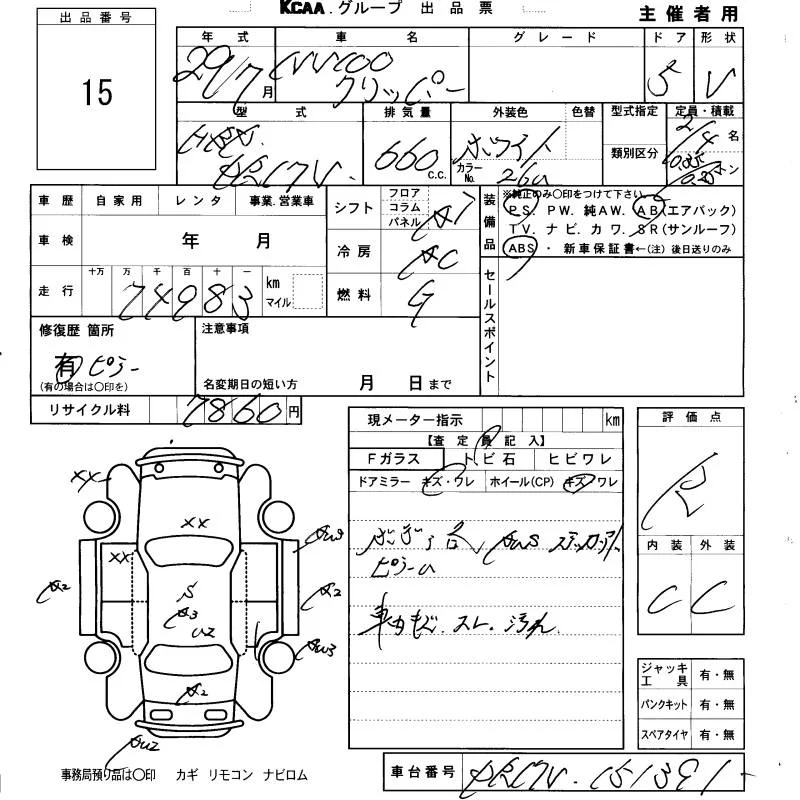 KCAA.グループ 出品票
主催者用
出品番号
15
年式 車名 グレード ドア 形状
29/7月 NV100 クリッパー 5 V
型式 排気量 外装色 色替 型式指定 定員・積載
HBD- DR17V 660 C.C. ホワイト カラーNo. 26U 類別区分 2/4名
車歴 自家用 レンタ 事業.営業車
シフト フロア コラム パネル AT
装備品 ※純正のみ〇印をつけて下さい
P S. P W. 純A W. A B(エアバック)
T V. ナ ビ. カ ワ. S R(サンルーフ)
ABS ・ 新車保証書←(注) 後日送りのみ
車検 年 月
冷房 AC
走行 十万 万 千 百 十 一 km マイル
74983
燃料 G
セールスポイント
修復歴 箇所
有 ピラー
(有の場合は〇印を)
注意事項
名変期日の短い方 月 日まで
リサイクル料 7860円
現メーター指示 km
【査定員記入】
Fガラス トビ石 ヒビワレ
ドアミラー キズ・ワレ ホイール(CP) キズ・ワレ
ピラーU
車内 スレ. 汚れ.
評価点
R
内装 外装
C C
XX
XX
XX
AW3
A2
S
A3
U2
A2
AW3
A2
AU2
ジャッキ工具 有・無
パンクキット 有・無
スペアタイヤ 有・無
事務局預り品は〇印 カギ リモコン ナビロム
車台番号 DR17V-151391